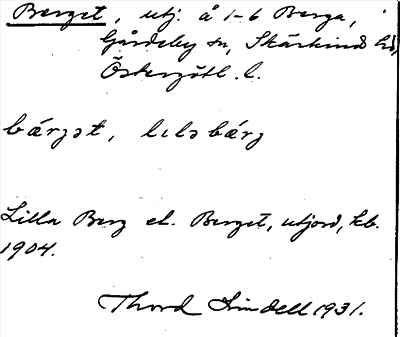 Berget, utj. å 1-6 Berga,
Gårdeby sn, Skärkinds hd,
Östergötl. l.
bárʒət, lılə bárʒ
Lilla Berg el. Berget, utjord, kb.
1904.
Thord Lindell 1931.